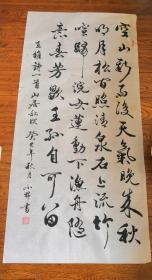 空山新雨後天氣晚来秋
明月松间照清泉石上流竹
喧歸浣女蓮動下漁舟随
意春芳歇王孫自可留
王維詩一首山居秋暝 癸巳年秋月 小 書